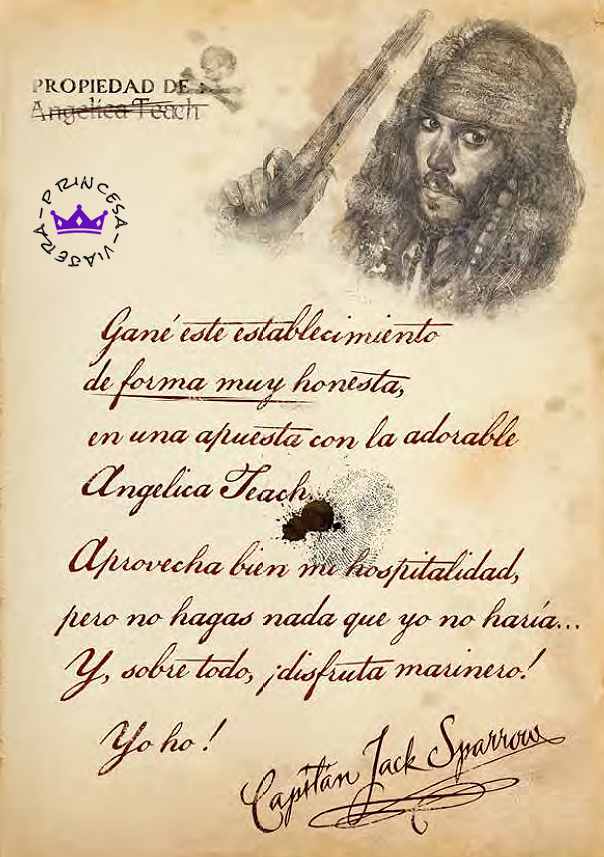 PROPIEDAD DE:
Angelica Teach
PRINCESA - VIAJERA -
Gané este establecimiento
de forma muy honesta,
en una apuesta con la adorable
Angelica Teach.
Aprovecha bien mi hospitalidad,
pero no hagas nada que yo no haría...
Y, sobre todo, ¡disfruta marinero!
Yo ho!
Capitán Jack Sparrow